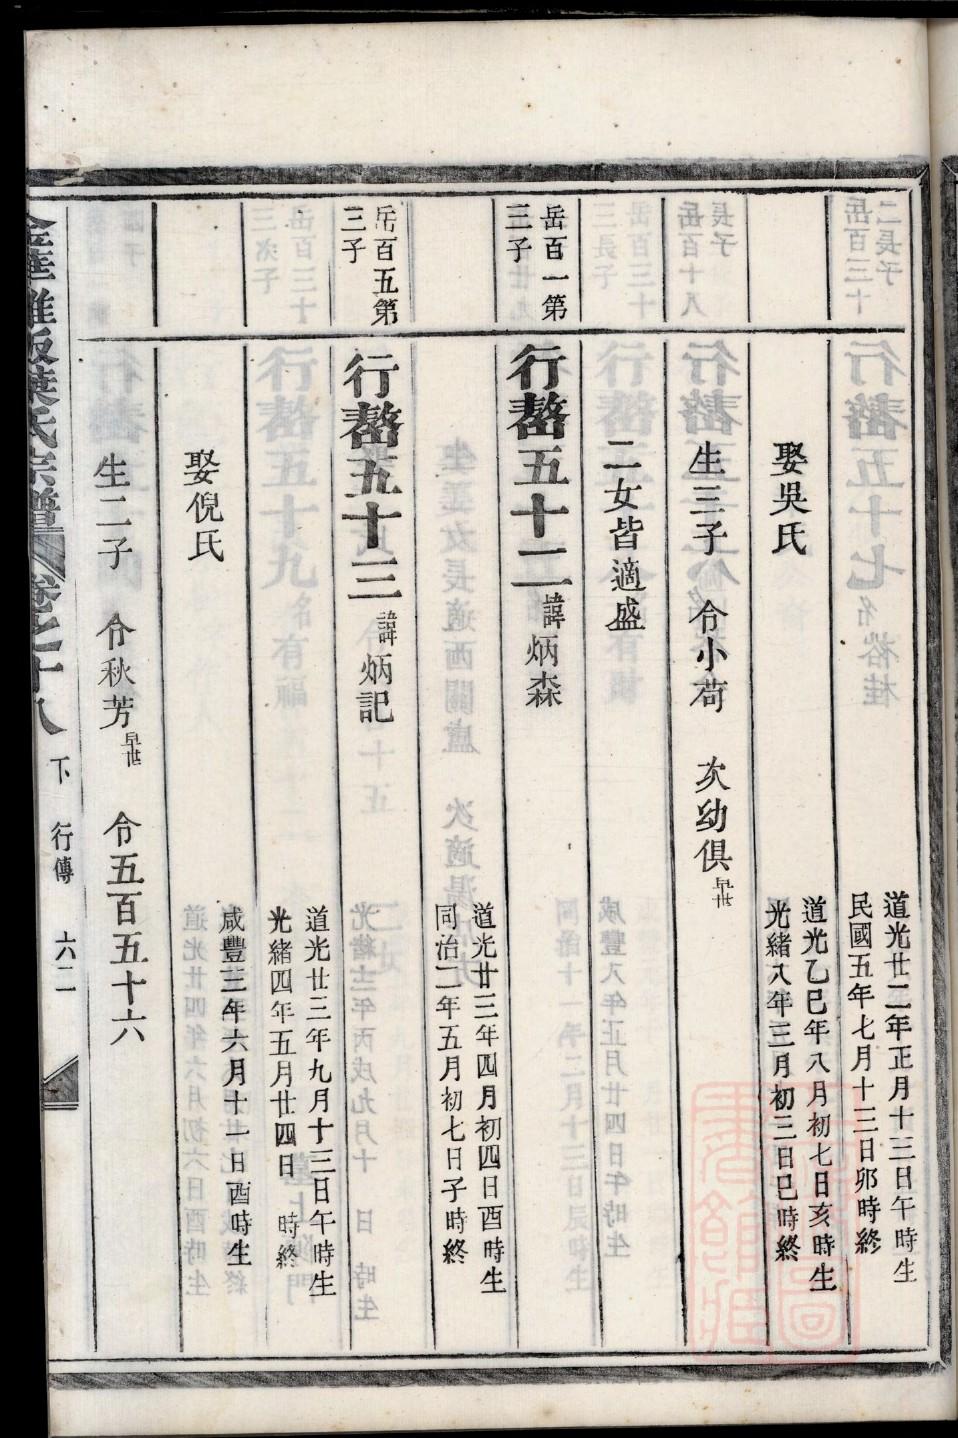 道光廿二年正月十三日午時生
民國五年七月十三日卯時終
娶吳氏
道光乙巳年八月初七日亥時生
光緒八年三月初三日巳時終
生三子 令小荷 次幼俱早世
二女皆適盛
岳百一第
三子
行嶅五十二諱炳森
道光廿三年四月初四日酉時生
同治二年五月初七日子時終
岳百五第
三子
行嶅五十三諱炳記
道光廿三年九月十三日午時生
光緒四年五月廿四日 時終
娶倪氏
咸豐三年六月十一日酉時生
生二子 令秋芳早世 令五百五十六
葉氏宗譜 卷之十八 下 行傳 六二